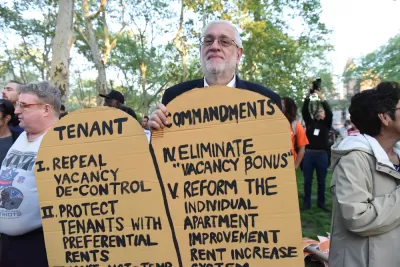 TENANT
I. REPEAL
VACANCY
DE-CONTROL
II. PROTECT
TENANTS WITH
PREFERENTIAL
RENTS
COMMANDMENTS
IV. ELIMINATE
"VACANCY BONUS"
V. REFORM THE
INDIVIDUAL
APARTMENT
IMPROVEMENT
RENT INCREASE
SYSTEM
PATRIOTS